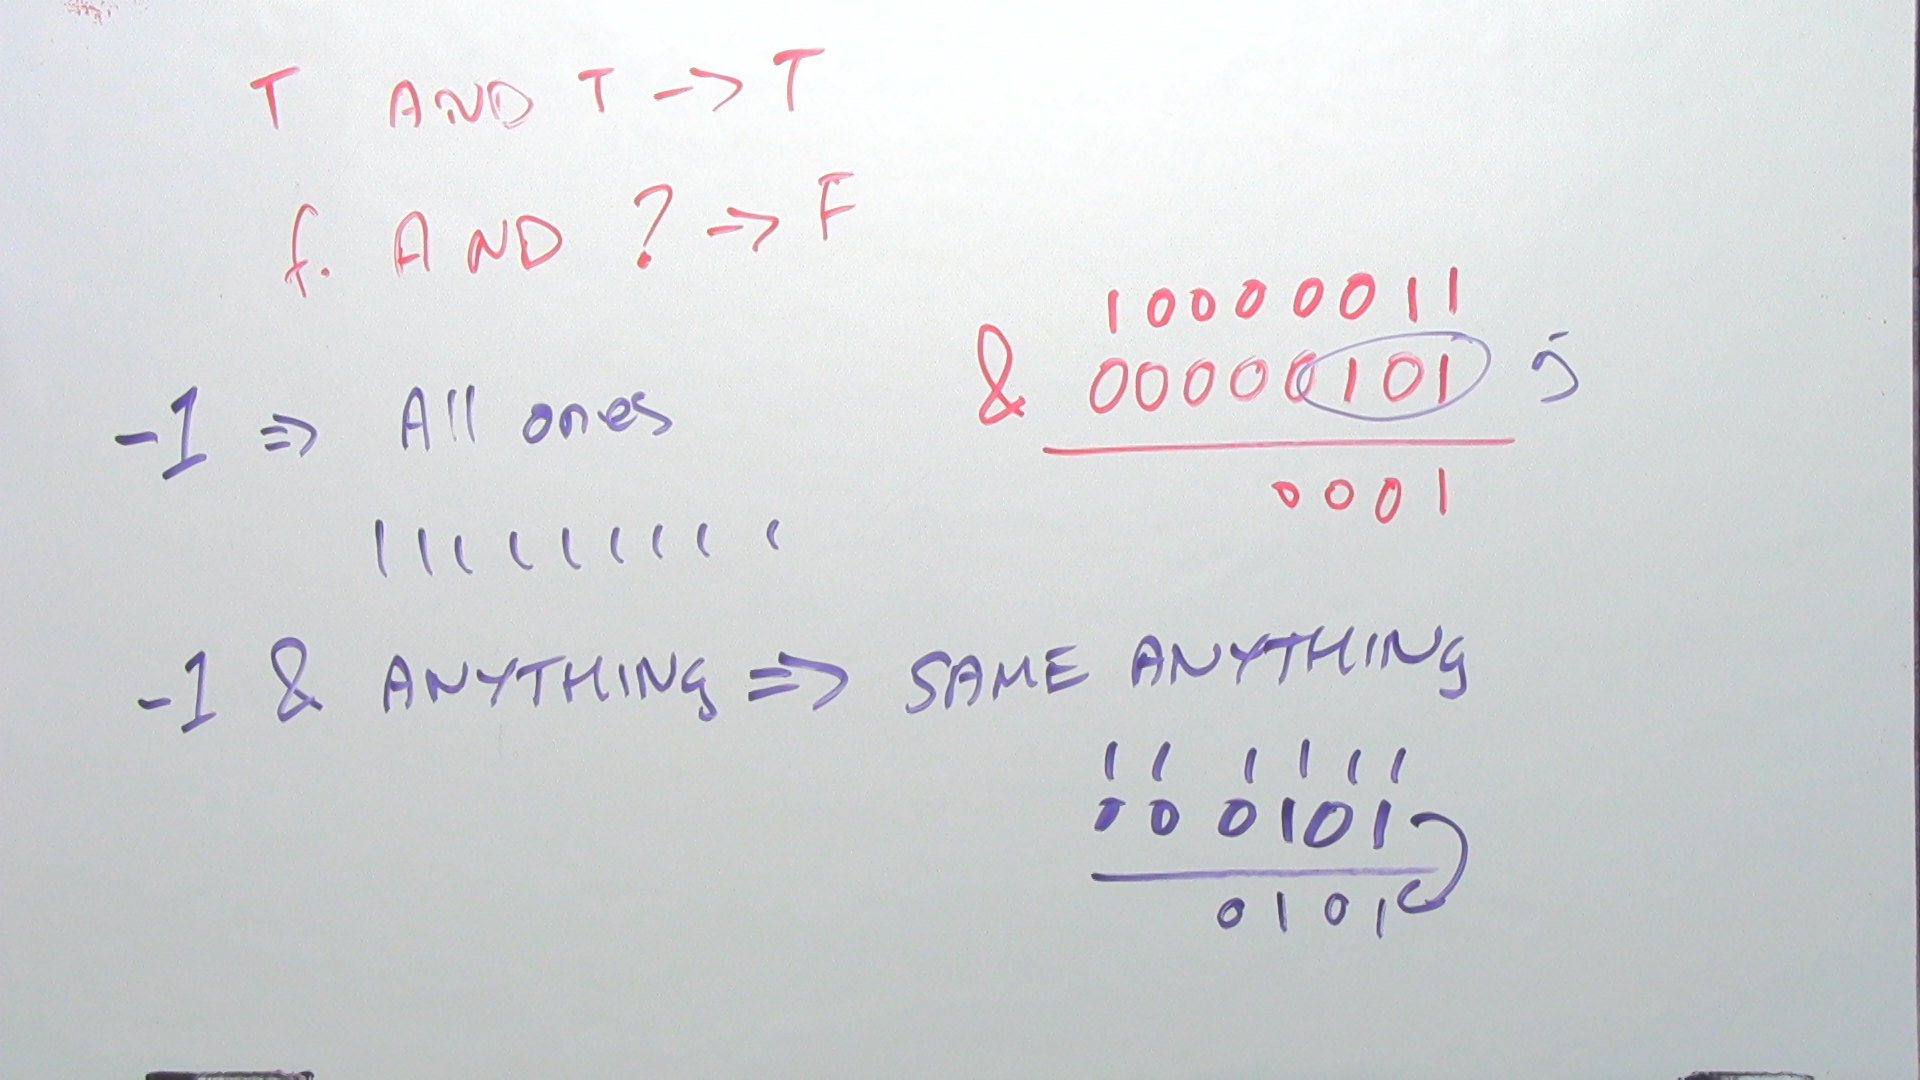 T AND T -> T
f. AND ? -> F
10000011
& 00000101 5
0001
-1 => All ones
1111111111
-1 & ANYTHING => SAME ANYTHING
111111
000101
0101